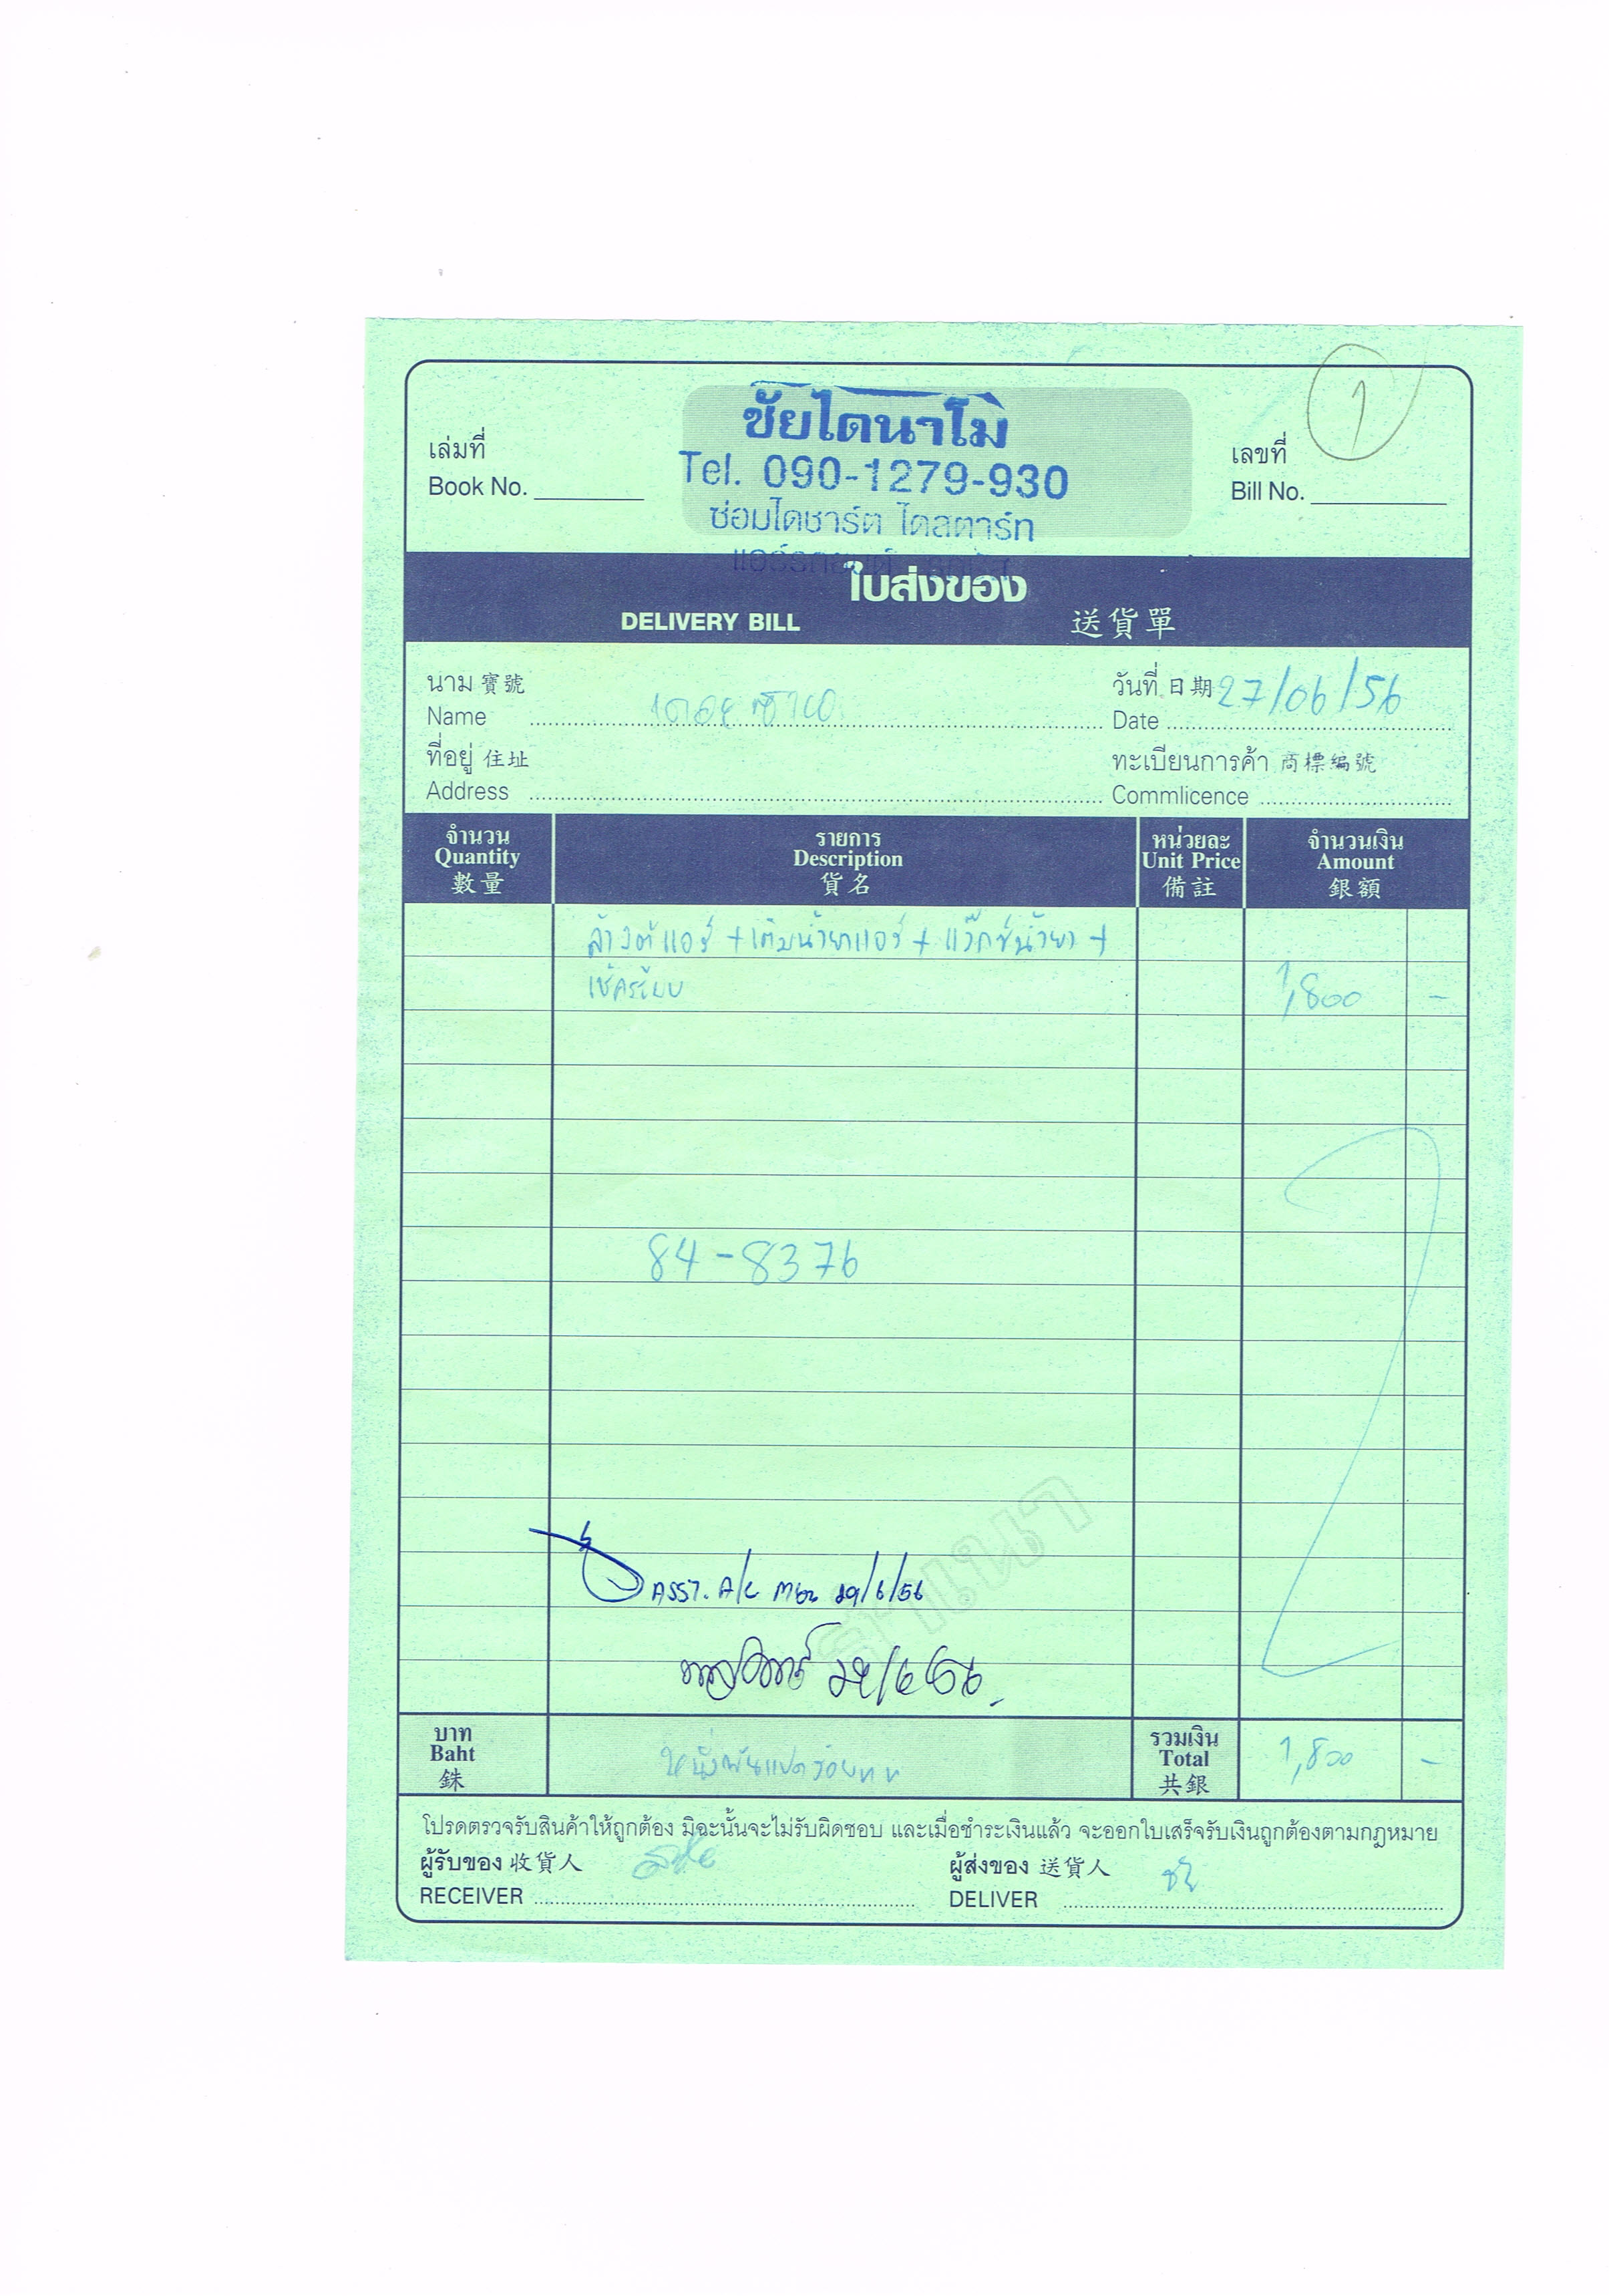 1
ชัยไดนาโม
Tel. 090-1279-930
ซ่อมไดชาร์ต ไดสตาร์ท
เล่มที่
Book No.
เลขที่
Bill No.
ใบส่งของ
DELIVERY BILL 送貨單
นาม 寶號
Name
วันที่ 日期 27/06/56
Date
ที่อยู่ 住址
Address
ทะเบียนการค้า 商標編號
Commlicence
จำนวน รายการ หน่วยละ จำนวนเงิน
Quantity Description Unit Price Amount
數量 貨名 備註 銀額
ล้างตู้แอร์ + เติมน้ำยาแอร์ + แว๊กซ์น้ำยา +
เช็คระบบ 1,800 -
84-8376
สำเนา
ASST. A/C Mgr 29/6/56
29/6/56
บาท
Baht
銖
หนึ่งพันแปดร้อยบาท
รวมเงิน
Total
共銀
1,800 -
โปรดตรวจรับสินค้าให้ถูกต้อง มิฉะนั้นจะไม่รับผิดชอบ และเมื่อชำระเงินแล้ว จะออกใบเสร็จรับเงินถูกต้องตามกฎหมาย
ผู้รับของ 收貨人
RECEIVER
ผู้ส่งของ 送貨人 ชัย
DELIVER